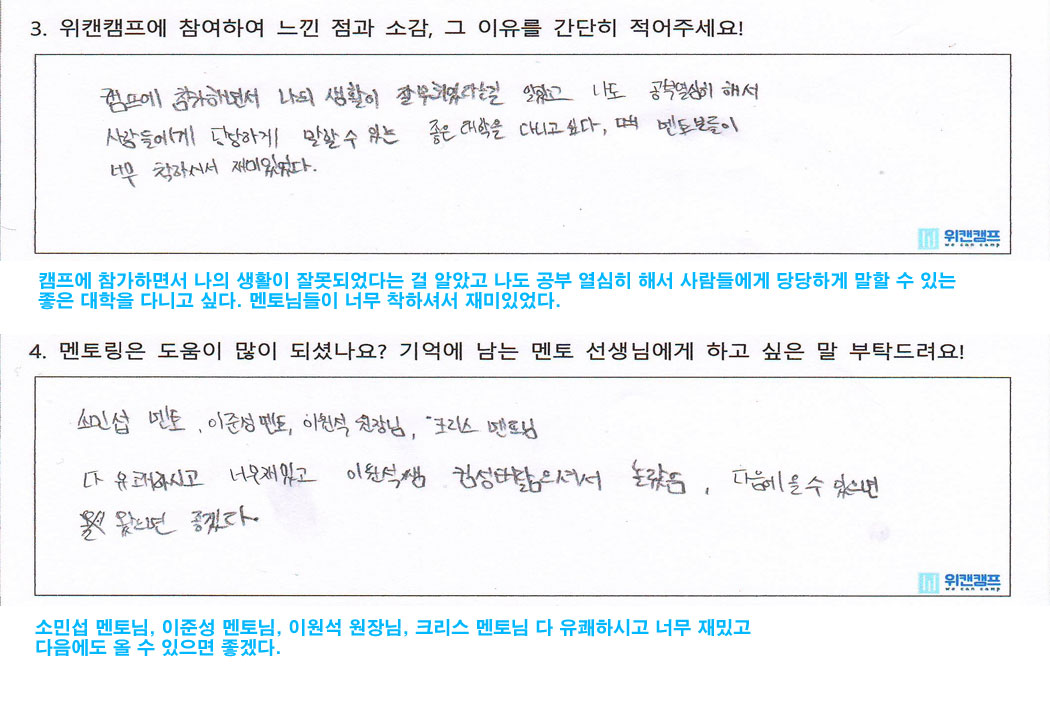 3. 위캔캠프에 참여하여 느낀 점과 소감, 그 이유를 간단히 적어주세요!
캠프에 참가하면서 나의 생활이 잘못되었다는걸 알았고 나도 공부열심히 해서
사람들에게 당당하게 말할 수 있는 좋은 대학을 다니고 싶다, 멘토분들이
너무 착하시서 재미있었다.
위캔캠프
we can camp
캠프에 참가하면서 나의 생활이 잘못되었다는 걸 알았고 나도 공부 열심히 해서 사람들에게 당당하게 말할 수 있는
좋은 대학을 다니고 싶다. 멘토님들이 너무 착하셔서 재미있었다.
4. 멘토링은 도움이 많이 되셨나요? 기억에 남는 멘토 선생님에게 하고 싶은 말 부탁드려요!
소민섭 멘토, 이준성멘토, 이원석 원장님, 크리스 멘토님
다 유쾌하시고 너무재밌고 이원석쌤 김성타닮으셔서 놀랐음, 다음에 올 수 있으면
왔으면 좋겠다.
위캔캠프
we can camp
소민섭 멘토님, 이준성 멘토님, 이원석 원장님, 크리스 멘토님 다 유쾌하시고 너무 재밌고
다음에도 올 수 있으면 좋겠다.